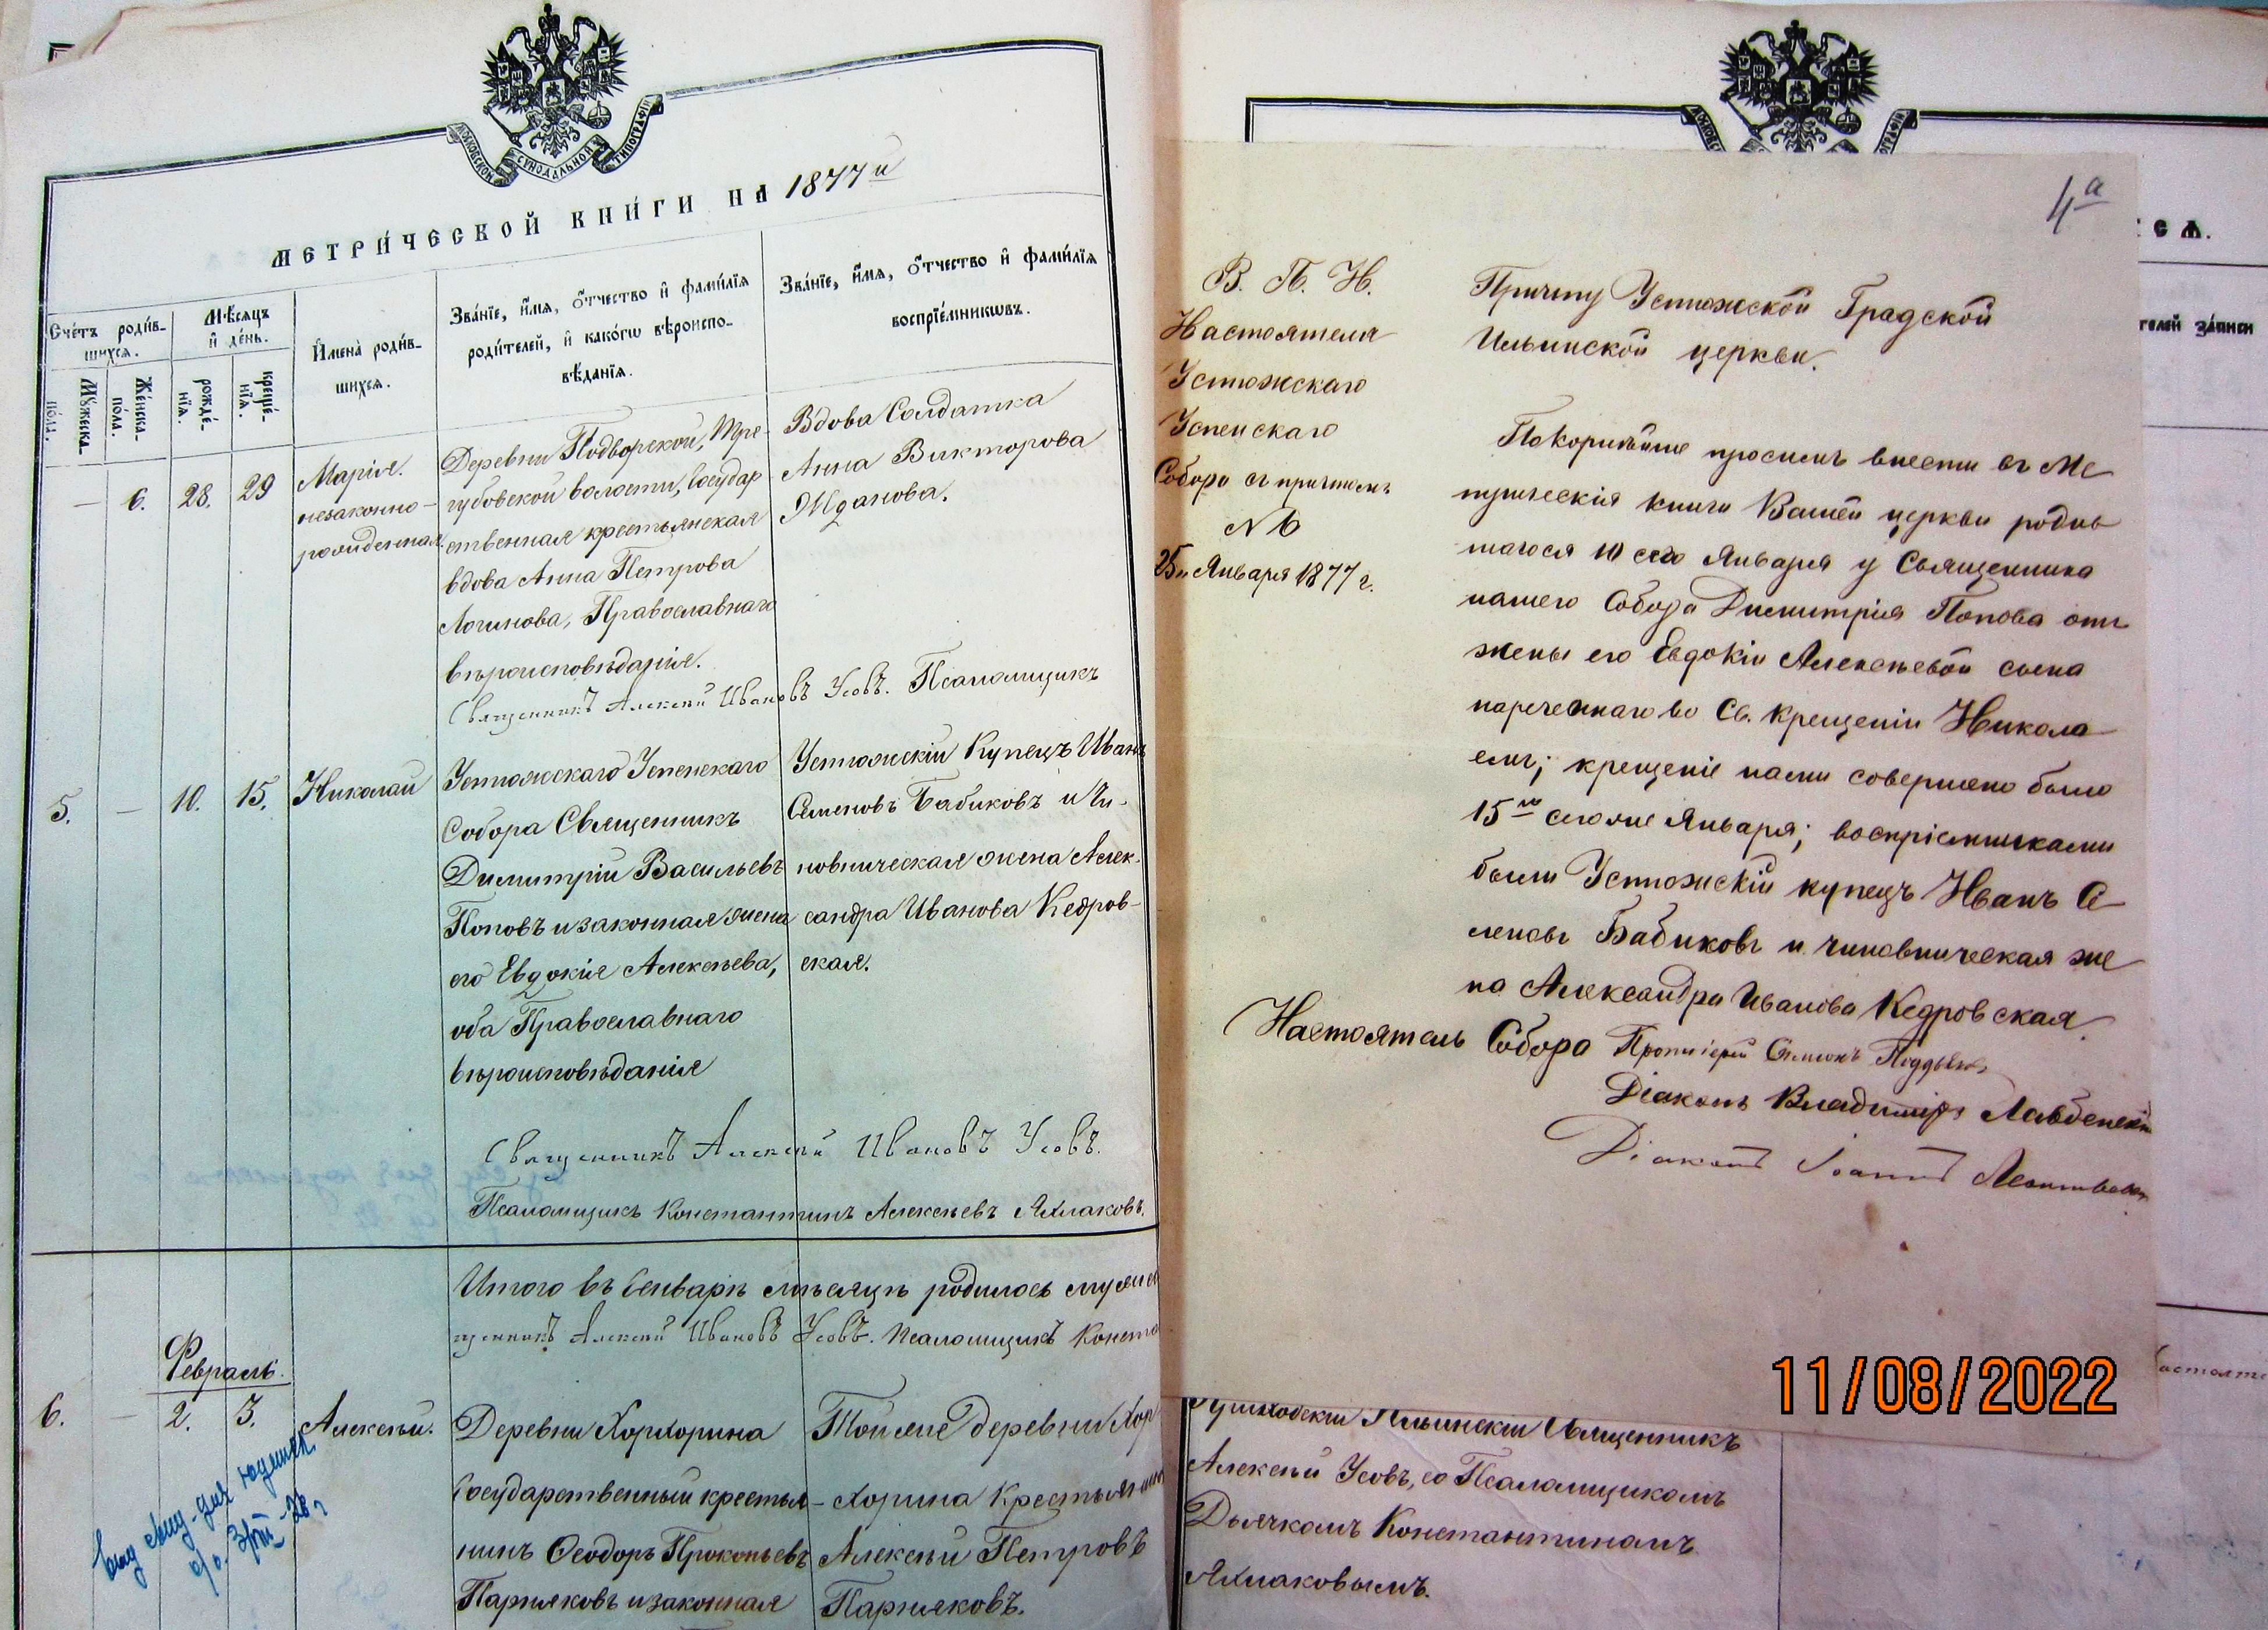 МОСКОВСКОЙ СѴНОДАЛЬНОЙ ТИПОГРАФІИ
МЕТРИ́ЧЕСКОЙ КНИ́ГИ НА 1877 й
Сче́тъ роди́в-
шихсѧ.
Мꙋ́жеска-
по́ла.
Же́нска-
по́ла.
Мѣ́сѧцъ
и҆ де́нь.
рожде́-
нїѧ.
креще́-
нїѧ.
И҆мена̀ роди́в-
шихсѧ.
Зва́нїе, и҆́мѧ, ѻ҆́тчество и҆ фами́лїѧ
роди́телей, и҆ како́гѡ вѣроиспо-
вѣ́данїѧ.
Зва́нїе, и҆́мѧ, ѻ҆́тчество и҆ фами́лїѧ
воспрїе́мникѡвъ.
— 6. 28. 29
Марія.
незаконно-
рожденная.
Деревни Подворской, Тре-
губовской волости, Государ
ственная крестьянская
вдова Анна Петрова
Логинова, Православнаго
вѣроисповѣданія.
Вдова Солдатка
Анна Викторова
Жданова.
Священникъ Алексѣй Ивановъ Усовъ. Псаломщикъ
5. — 10. 15. Николай
Устюжскаго Успенскаго
Собора Священникъ
Димитрій Васильевъ
Поповъ и законная жена
его Евдокія Алексѣева,
оба Православнаго
вѣроисповѣданія
Устюжскій Купецъ Иванъ
Семеновъ Бабиковъ и Чи-
новническая жена Алек-
сандра Иванова Кедров-
ская.
Священникъ Алексѣй Ивановъ Усовъ.
Псаломщикъ Константинъ Алексѣевъ Яхлаковъ.
Итого въ Генварѣ мѣсяцѣ родилось
Алексѣй Ивановъ Усовъ. Псаломщикъ Конста
Февраль.
6. — 2. 3. Алексѣй.
Деревни Хорхорина
Государственный крестья-
нинъ Ѳеодоръ Прокопьевъ
Парняковъ и законная
Той же деревни Хор
хорина Крестьянинъ
Алексѣй Петровъ
Парняковъ.
4а
В. П. Н.
Настоятеля
Устюжскаго
Успенскаго
Собора съ причтомъ
№ 6
25 Января 1877 г.
Причту Устюжской Градской
Ильинской церкви.
Покорнѣйше просимъ внести въ Ме
трическія книги Вашей церкви родив
шагося 10 сего Января у Священника
нашего Собора Димитрія Попова отъ
жены его Евдокіи Алексѣевой сына
нареченнаго во Св. крещеніи Никола
емъ; крещеніе нами совершено было
15го сего же Января; воспріемниками
были Устюжскій купецъ Иванъ Се
меновъ Бабиковъ и чиновническая же
на Александра Иванова Кедровская.
Настоятель Собора Протоіерей Симеонъ
Діаконъ Владиміръ
Діаконъ Іоаннъ
СѦ.
телей за́писи
Ильинскій Священникъ
Алексѣй Усовъ, со Псаломщикомъ
Дьячкомъ Константиномъ
Яхлаковымъ.
11/08/2022